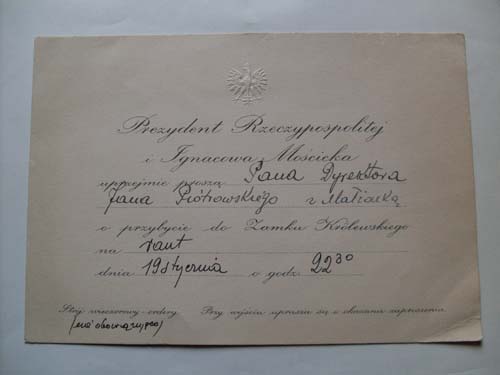 Prezydent Rzeczypospolitej
i Ignacowa Mościcka
uprzejmie proszą Pana Dyrektora
Jana Piotrowskiego z Małżonką
o przybycie do Zamku Królewskiego
na raut
dnia 19 stycznia o godz. 22 30
Strój wieczorowy - ordery. Przy wejściu uprasza się o okazanie zaproszenia.
(nie obowiązujące)